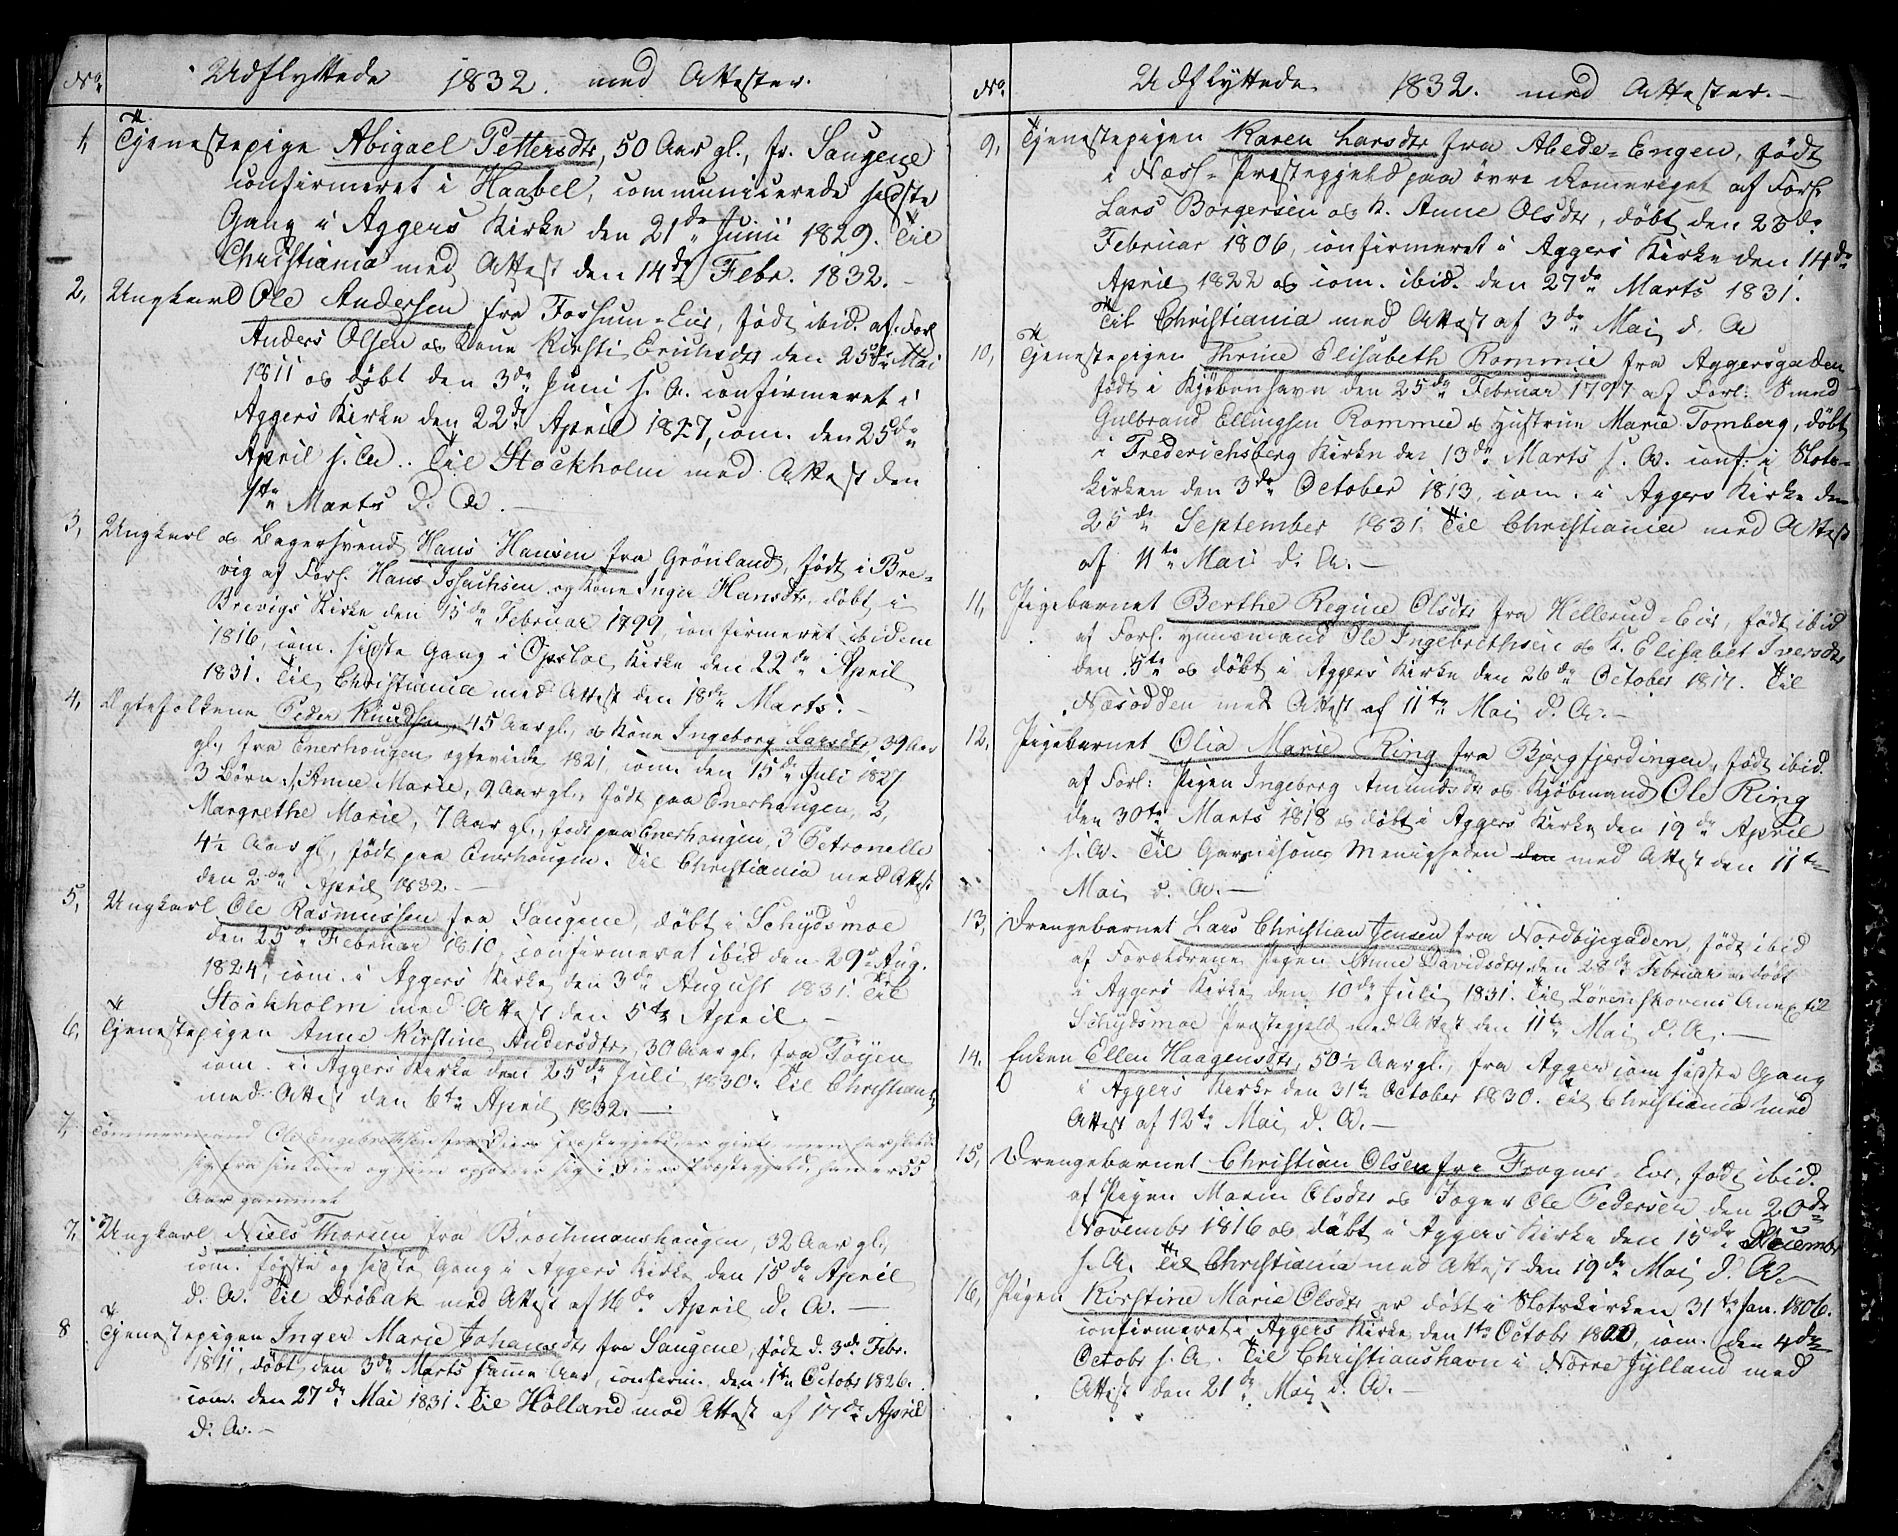 No. Udflyttede 1832. med Attester.
1, Tjenestepige Abigael Pettersdtr, 50 Aar gl., fr. Saugene
confirmeret i Haabel, communicerede sidste
Gang i Aggers Kirke den 21de Junii 1829. Til
Christiania med Attest den 14de Febr. 1832.
2, Ungkarl Ole Andersen fra Fossum-Eie, født ibid. af Forl
Anders Olsen og Kone Kirsti Erichsdtr den 25de Mai
1811 og døbt den 3de Juni s. A. confirmeret i
Aggers Kirke den 22de April 1827, com. den 25de
April s. A. Til Stockholm med Attest den
1te Marts d. A.
3, Ungkarl og Bagersvend Hans Hansen fra Grönland, født i Bre-
vig af Forl. Hans Issachsen og Kone Inger Hansdtr, døbt i
Brevigs Kirke den 15de Februar 1799, confirmeret ibidem
1816, com. sidste Gang i Opsloe Kirke den 22de April
1831. Til Christiania med Attest den 18de Marts.
4, Ægtefolkene Peder Knudsen, 45 Aar gl., og Kone Ingeborg Larsdtr, 39 Aar
gl., fra Enerhaugen, egteviede 1821, com. den 15de Juli 1827
3 Børn 1, Anne Marie, 9 Aar gl., født paa Enerhaugen, 2,
Margrethe Marie, 7 Aar gl., født paa Enerhaugen, 3 Petronelle
4½ Aar gl., født paa Enerhaugen. Til Christiania med Attest
den 2den April 1832.
5, Ungkarl Ole Rasmussen fra Saugene, døbt i Schydsmoe
den 25de Februar 1810, confirmeret ibid den 29de Aug.
1824, com. i Aggers Kirke den 3de August 1831. Til
Stockholm med Attest den 5te April.
6, Tjenestepigen Anne Kirstine Andersdtr, 30 Aar gl. fra Töyen
com. i Aggers Kirke den 25de Juli 1830. Til Christiania
med Attest den 6te April 1832.
7, Tømmermand Ole Engebrethsen fra Præstegjeld er givt men har skildt
sig fra sin Kone og hun opholder sig i Præstegjeld, han er 55
Aar gammel
7, Ungkarl Niels Thorsen fra Brochmanshougen, 32 Aar gl.,
com. første og sidste Gang i Aggers Kirke den 15de April
d. A. Til Dröbak med Attest af 16de April d. A.
8 Tjenestepigen Inger Marie Johansdtr fra Saugene, født d. 3de Febr.
1811, døbt den 3de Marts samme Aar, confirm. den 1te Octobr 1826.
com. den 27de Mai 1831. Til Holland med Attest af 17de April
d. A.
No. Udflyttede 1832. med Attester.
9, Tjenestepigen Karen Larsdtr fra Abede-Engen, født
i Næss-Præstegjeld paa øvre Romeriget af Forl.
Lars Borgersen og K. Anne Olsdtr, døbt den 23de
Februar 1806, confirmeret i Aggers Kirke den 14de
April 1822 og com. ibid. den 27de Marts 1831.
Til Christiania med Attest af 3de Mai d. A
10, Tjenestepigen Thrine Elisabeth Rommie fra Aggersgaden
født i Kjøbenhavn den 25de Februar 1797 af Forl: Smed
Gulbrand Ellingsen Rommie og Hustrue Marie Tomberg, døbt
i Frederichsberg Kirke den 13de Marts s. A. conf: i Slots-
kirken den 3de October 1813, com. i Aggers Kirke den
25de September 1831. Til Christiania med Attest
af 4te Mai d. A.
11, Pigebarnet Berthe Regine Olsdtr fra Hellerud-Eie, født ibid
af Forl. Huusmand Ole Ingebrethsen og K. Elisabet Iversdtr
den 5te og døbt i Aggers Kirke den 26de October 1817. Til
Næsodden med Attest af 11te Mai d. A.
12, Pigebarnet Olia Marie Ring fra Bjergfjerdingen, født ibid.
af Forl: Pigen Ingeborg Amundsdtr og Kjøbmand Ole Ring
den 30te Marts 1818 og døbt i Aggers Kirke den 19de April
s. A. Til Garnisons Menigheden den med Attest den 11te
Mai d. A.
13, Drengebarnet Lars Christian Jensen fra Nordbyegaden, født ibid
af Forældrene Pigen Anne Davidsdtr den 28de Februar og døbt
i Aggers Kirke den 10de Juli 1831. Til Lørenskovens Annex til
Schydsmoe Præstegjeld med Attest den 11te Mai d. A.
14, Enken Ellen Haagensdtr, 50½ Aar gl., fra Agger com sidste Gang
i Aggers Kirke den 31te October 1830. Til Christiania med
Attest af 12te Mai d. A.
15, Drengebarnet Christian Olsen fra Frogner-Eie, født ibid.
af Pigen Maren Olsdtr og Jæger Ole Pedersen den 20de
Novembr 1816 og døbt i Aggers Kirke den 15de Decembr
s. A. Til Christiania med Attest den 19de Mai d. A.
16, Pigen Kirstine Marie Olsdtr er døbt i Slotskirken 31te Jan. 1806.
confirmeret i Aggers Kirke den 1te Octobr 1820, com. den 4de
Octobr s. A. Til Christianshavn i Nørre Jylland med
Attest den 21de Mai d. A.